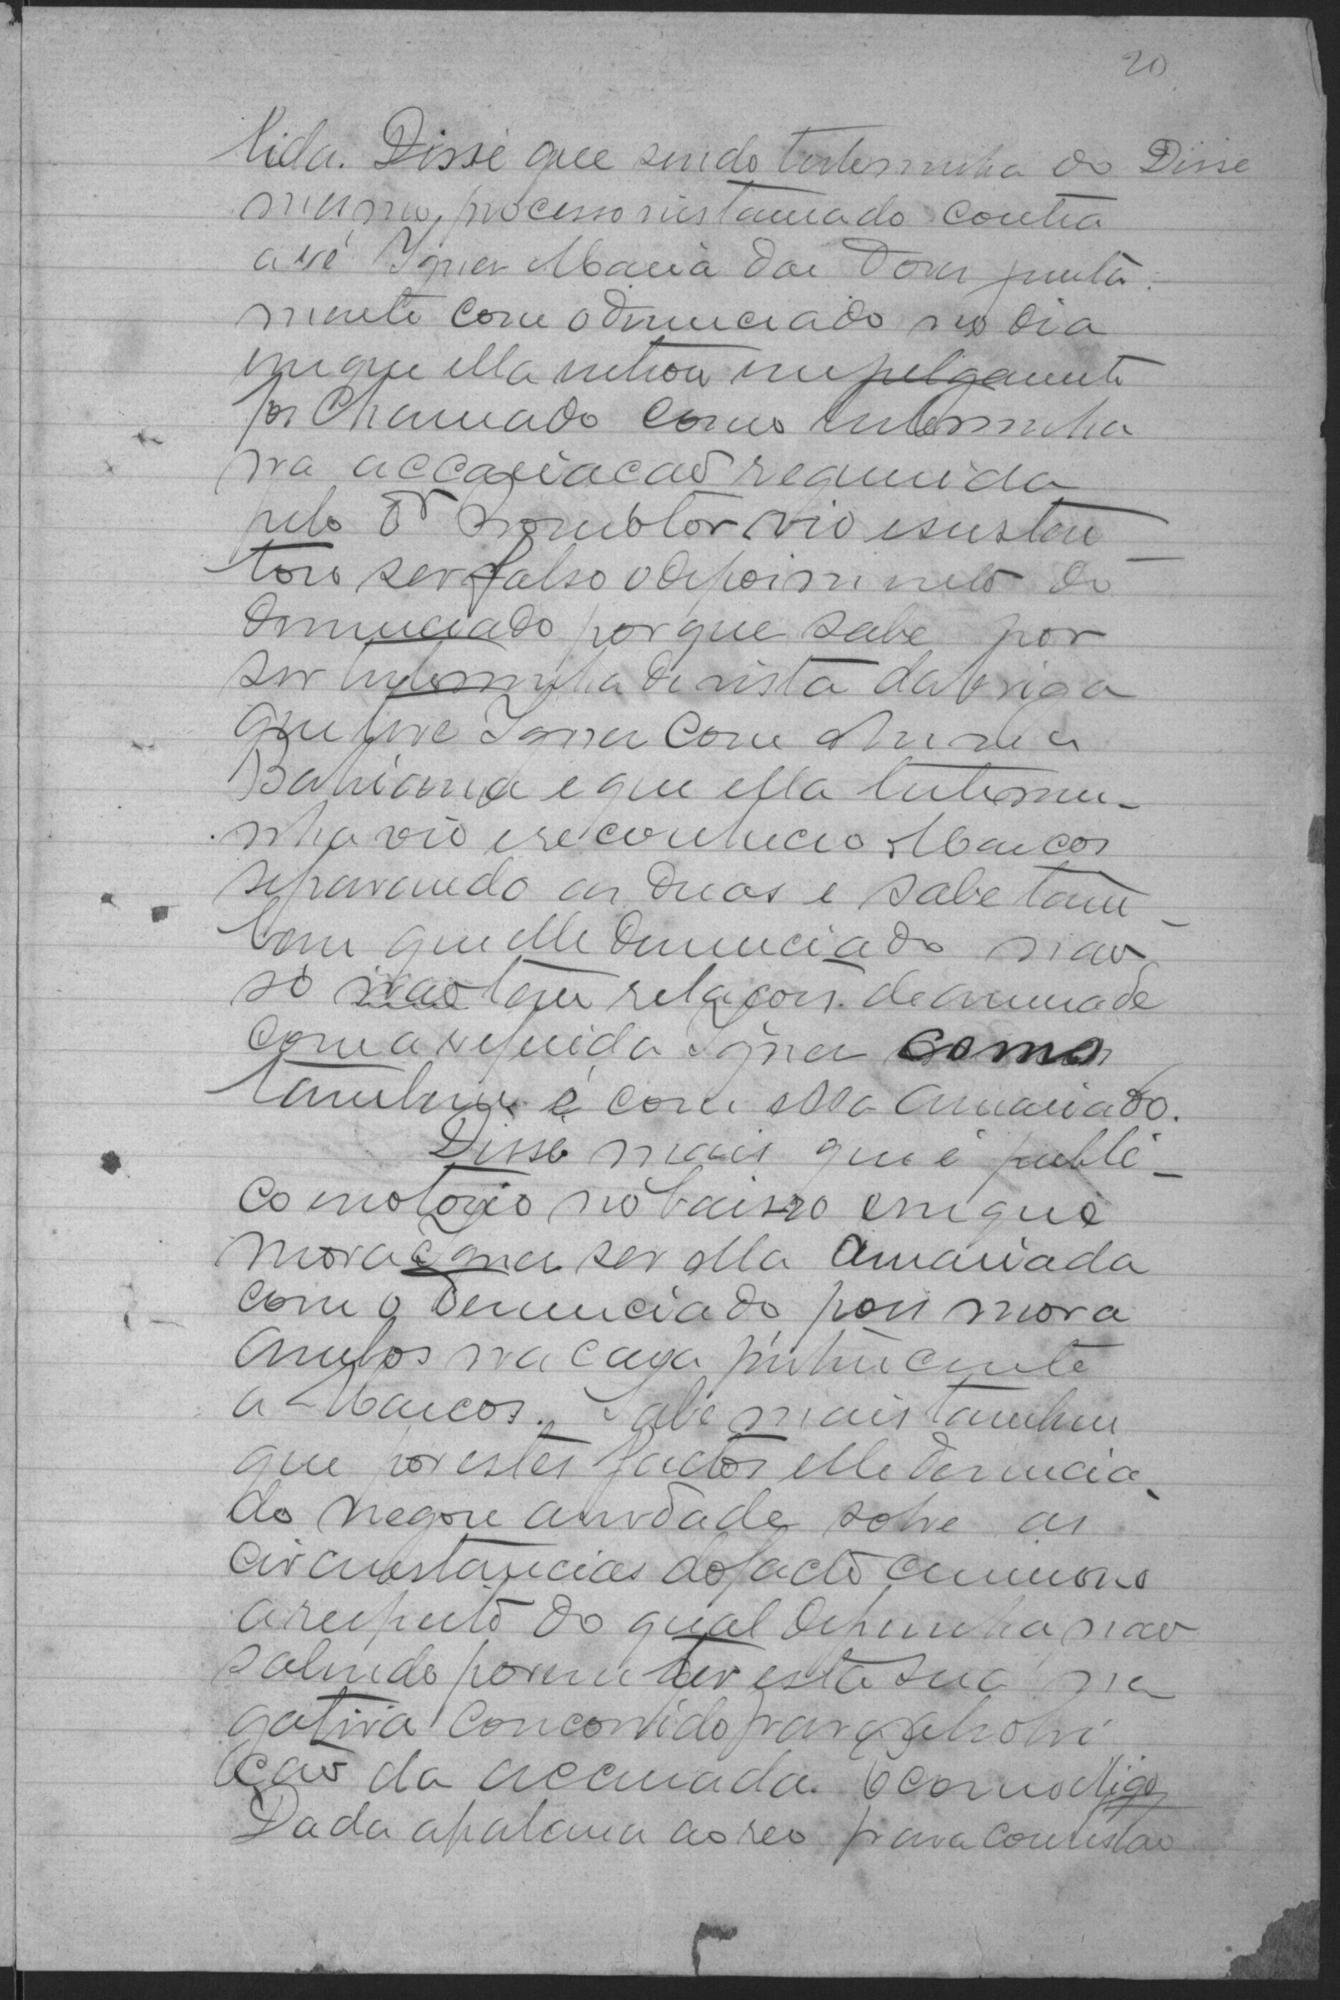 20
lida. Disse que sendo testemunha do Disse
mesmo processo instaurado contra
a ré Ignez Maria das Dores junta
mente com o denunciado no dia
em que ella entrou em julgamento
foi chamado como testemunha
na accariacaõ requerida
pelo Dr Promotor vio e susten
tou ser falso o depoimento do
denunciado porque sabe por
ser testemunha de vista da briga
que teve Ignez com
Bahiana e que ella testemu-
nha vio e reconheceo Marcos
separando as duas e sabe tam
bem que elle denunciado naõ
só naõ tem relações de amizade
com a referida Ignez como
tambem é com ella amaziado.
Disse mais que é publi-
co e notorio no bairro em que
mora Ignez ser ella amaziada
com o denunciado pois mora
ambos na caza pertencente
a Marcos. Sabe mais tambem
que por estes factos elle denuncia
do negou a verdade sobre as
circunstancias do facto criminoso
a respeito do qual depunha naõ
sabendo porem ter esta sua ne
gativa concorrido para absolvi
çaõ da accuzada. E como digo
Dada a palavra ao reo para contestar